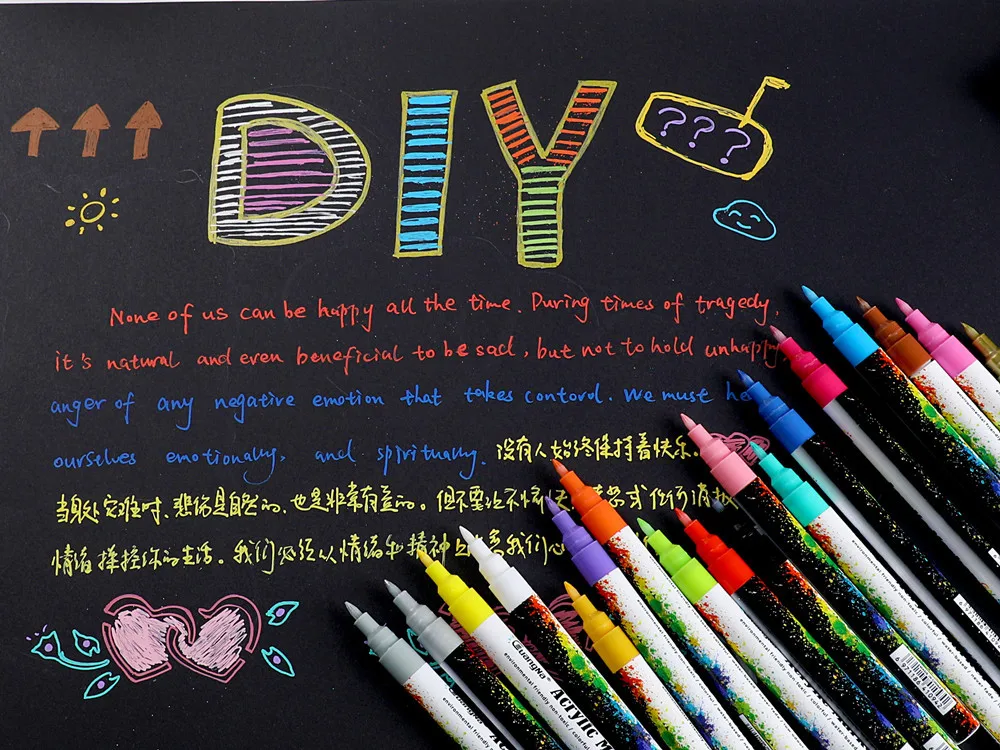 DIY
? ? ?
None of us can be happy all the time. During times of tragedy,
it's natural and even beneficial to be sad, but not to hold unhappy
anger of any negative emotion that takes contorol. We must he
ourselves emotionally, and spiritually. 没有人始终保持着快乐。
当身处灾难时、悲伤是自然的、也是非常有益的。但不要让不愉
情绪操控你的生活。我们必须从情绪和精神上 我们
GUANGNA
environmental friendly non-toxic / colorful
Acrylic M